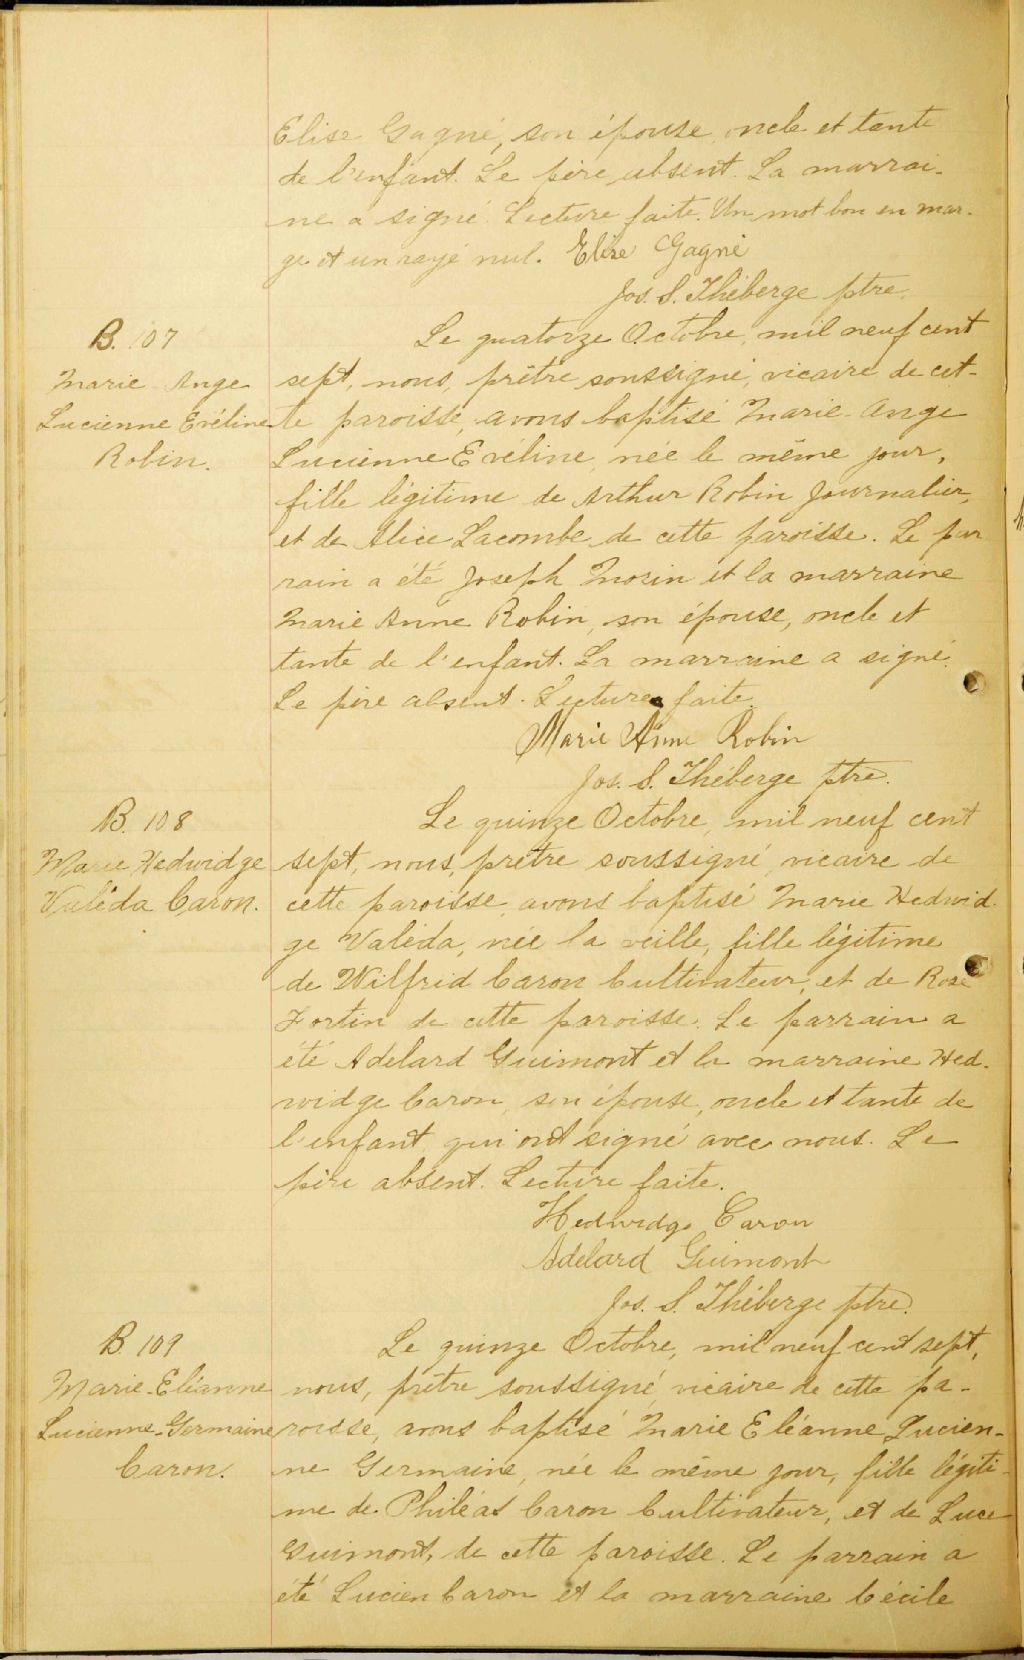 Elise Gagné, son épouse, oncle et tante
de l'enfant. Le père absent. La marrai-
ne a signé. Lecture faite. Un mot bon en mar-
ge et un rayé nul. Elise Gagné
Jos. S. Théberge ptre.
B. 107
Marie Ange
Lucienne Evéline
Robin.
Le quatorze Octobre, mil neuf cent
sept, nous, prêtre soussigné, vicaire de cet-
te paroisse, avons baptisé Marie-Ange
Lucienne Evéline, née le même jour,
fille légitime de Arthur Robin Journalier,
et de Alice Lacombe de cette paroisse. Le par
rain a été Joseph Morin et la marraine
Marie Anne Robin, son épouse, oncle et
tante de l'enfant. La marraine a signé.
Le père absent. Lecture faite.
Marie Anne Robin
Jos. S. Théberge ptre.
B. 108
Marie Hedwidge
Valéda Caron.
Le quinze Octobre, mil neuf cent
sept, nous, prêtre soussigné, vicaire de
cette paroisse, avons baptisé Marie Hedwid-
ge Valéda, née la veille, fille légitime
de Wilfrid Caron Cultivateur, et de Rose
Fortin de cette paroisse. Le parrain a
été Adelard Guimont et la marraine Hed-
widge Caron, son épouse, oncle et tante de
l'enfant, qui ont signé avec nous. Le
père absent. Lecture faite.
Hedwidge Caron
Adelard Guimont
Jos. S. Théberge ptre.
B. 109
Marie-Eléanne
Lucienne-Germaine
Caron.
Le quinze Octobre, mil neuf cent sept,
nous, prêtre soussigné, vicaire de cette pa-
roisse, avons baptisé Marie Eléanne Lucien-
ne Germaine, née le même jour, fille légiti-
me de Philéas Caron Cultivateur, et de Luce
Guimont, de cette paroisse. Le parrain a
été Lucien Caron et la marraine Cécile